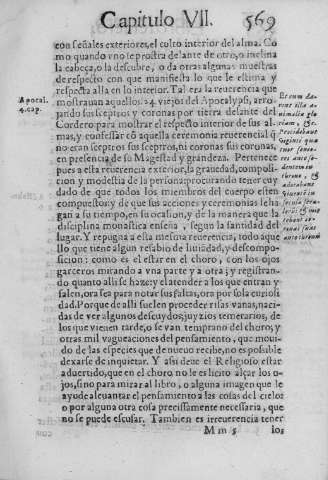 Capitulo VII. 569
con señales exteriores, el culto interior del alma. Co
mo quando vno se prostra delante de otro, o inclina
la cabeça, o la descubre, o da otras algunas muestras
de respecto con que manifiesta lo que le estima y
respecta alla en lo interior. Tal era la reuerencia que
mostrauan aquellos 24. viejos del Apocalypsi, arro-
jando sus sceptros y coronas por tierra delante del
Cordero para mostrar el respecto interior de sus al-
mas, y confessar cō aquella ceremonia reuerencial q̄
no eran sceptros sus sceptros, ni coronas sus coronas,
en presencia de su Magestad y grandeza. Pertenece
pues a esta reuerencia exterior, la grauedad, compusi-
cion y modestia de la persona: procurando tener cuy
dado de que todos los miembros del cuerpo esten
compuestos: y de que sus acciones y ceremonias le ha
gan a su tiempo, en su ocasion, y de la manera que la
disciplina monastica enseña, segun la santidad del
lugar. Y repugna a esta mesma reuerencia, todo aque
llo que tiene algun resabio de liuiādad, y descompo-
sicion: como es el estar en el choro, con los ojos
garceros mirando a vna parte y a otra; y registran-
do quanto alli se haze: y el atender a los que entran y
salen, ora sea para notar sus faltas, ora por sola curiosi
dad. Porque de alli suelen proceder risas vanas, naci-
das de ver algunos descuydos, juyzios temerarios, de
los que vienen tarde, o se van temprano del choro, y
otras mil vagueaciones del pensamiento, que moui-
do de las especies que de nueuo recibe, no es posible
dexarse de inquietar. Y assi deue el Religioso estar
aduertido, que en el choro no le es licito alçar los o-
jos, sino para mirar al libro, o alguna imagen que le
ayude a leuantar el pensamiento a las cosas del cielo:
o por alguna otra cosa precissamente necessaria, que
no se puede escusar. Tambien es irreuerencia tener
M m 5 los
Apocal.
4. cap.
Et cum da-
rent illa a-
nimalia glo
riam, &c.
Procidebant
viginti qua
tuor senio-
res ante se-
dentem in
throno, &
adorabant
viuentē in
secula secu-
lorū: & mit
tebant co-
ronas suas
ante thronum